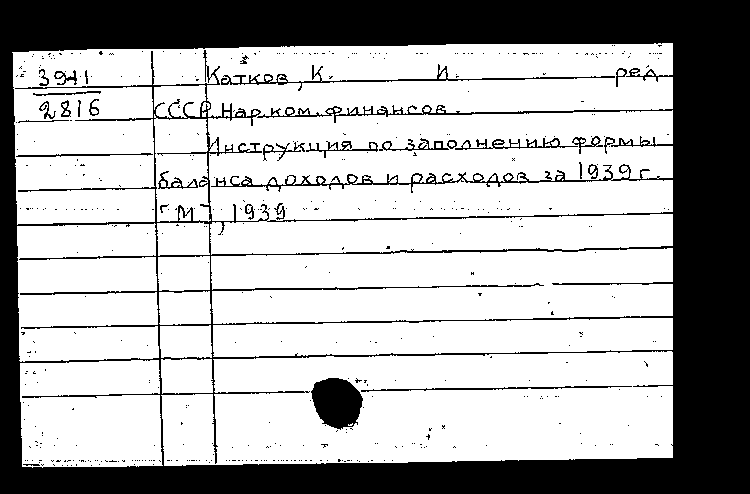 3941 Катков, К. И. ред
2816 СССР. Нар. ком. финансов.
Инструкция по заполнению формы
баланса доходов и расходов за 1939 г.
"М", 1939